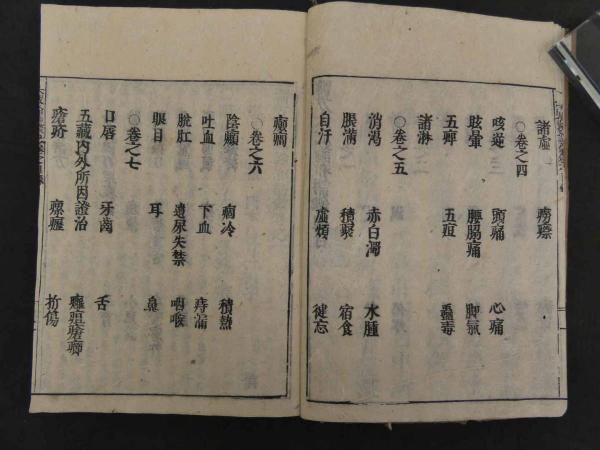 諸虛 癆瘵
○卷之四
咳逆 頭痛 心痛
眩暈 腰脇痛 脚氣
五痺 五疸 蠱毒
諸淋
○卷之五
消渴 赤白濁 水腫
脹滿 積聚 宿食
自汗 虛煩 健忘
癲癇
○卷之六
陰㿗 痼冷 積熱
吐血 下血 痔漏
脫肛 遺尿失禁 咽喉
眼目 耳 鼻
○卷之七
口唇 牙齒 舌
五藏內外所因證治 癰疽瘡癤
瘡疥 瘰癧 折傷